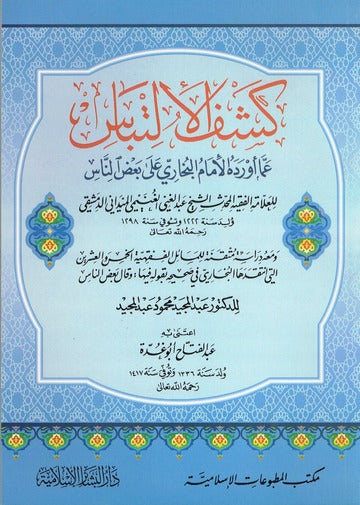 كشف الالتباس
عما أورده الإمام البخاري على بعض الناس
للعلامة الفقيه المحدث الشيخ عبد الغني الغنيمي الميداني الدمشقي
ولد سنة ١٢٢٢ وتوفي سنة ١٢٩٨
رحمه الله تعالى
ومعه دراسات متقدمة للمسائل الفقهية الخمس والعشرين
التي انتقدها البخاري في صحيحه بقوله فيها: وقال بعض الناس
للدكتور عبد المجيد محمود عبد المجيد
اعتنى به
عبد الفتاح أبو غدة
ولد سنة ١٣٣٦ وتوفي سنة ١٤١٧
رحمه الله تعالى
مكتب المطبوعات الإسلامية
دار البشائر الإسلامية